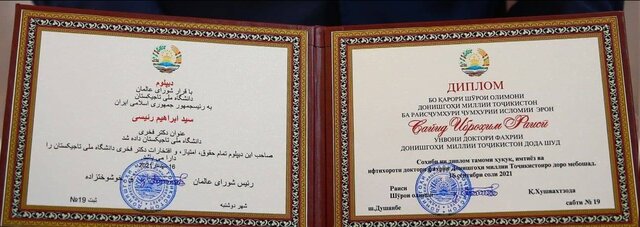 دیپلوم
با قرار شورای عالمان
دانشگاه ملی تاجیکستان
به رئیس‌جمهور جمهوری اسلامی ایران
سید ابراهیم رئیسی
عنوان دکتر فخری
دانشگاه ملی تاجیکستان داده شد
صاحب این دیپلوم تمام حقوق، امتیازه و افتخارات دکتر فخری دانشگاه ملی تاجیکستان را
دارا می
2021
رئیس شورای عالمان
خوشوختزاده
شهر دوشنبه
ثبت №19
ДИПЛОМ
БО ҚАРОРИ ШӮРОИ ОЛИМОНИ
ДОНИШГОҲИ МИЛЛИИ ТОҶИКИСТОН
БА РАИСҶУМҲУРИ ҶУМҲУРИИ ИСЛОМИИ ЭРОН
Сайид Иброҳим Раисӣ
УНВОНИ ДОКТОРИ ФАХРИИ
ДОНИШГОҲИ МИЛЛИИ ТОҶИКИСТОН ДОДА ШУД
Соҳиби ин диплом тамоми ҳуқуқ, имтиёз ва
ифтихороти доктори фахрии Донишгоҳи миллии Тоҷикистонро доро мебошад.
16 сентябри соли 2021
Раиси
Шӯрои
Қ.Хушвахтзода
ш.Душанбе
сабти № 19